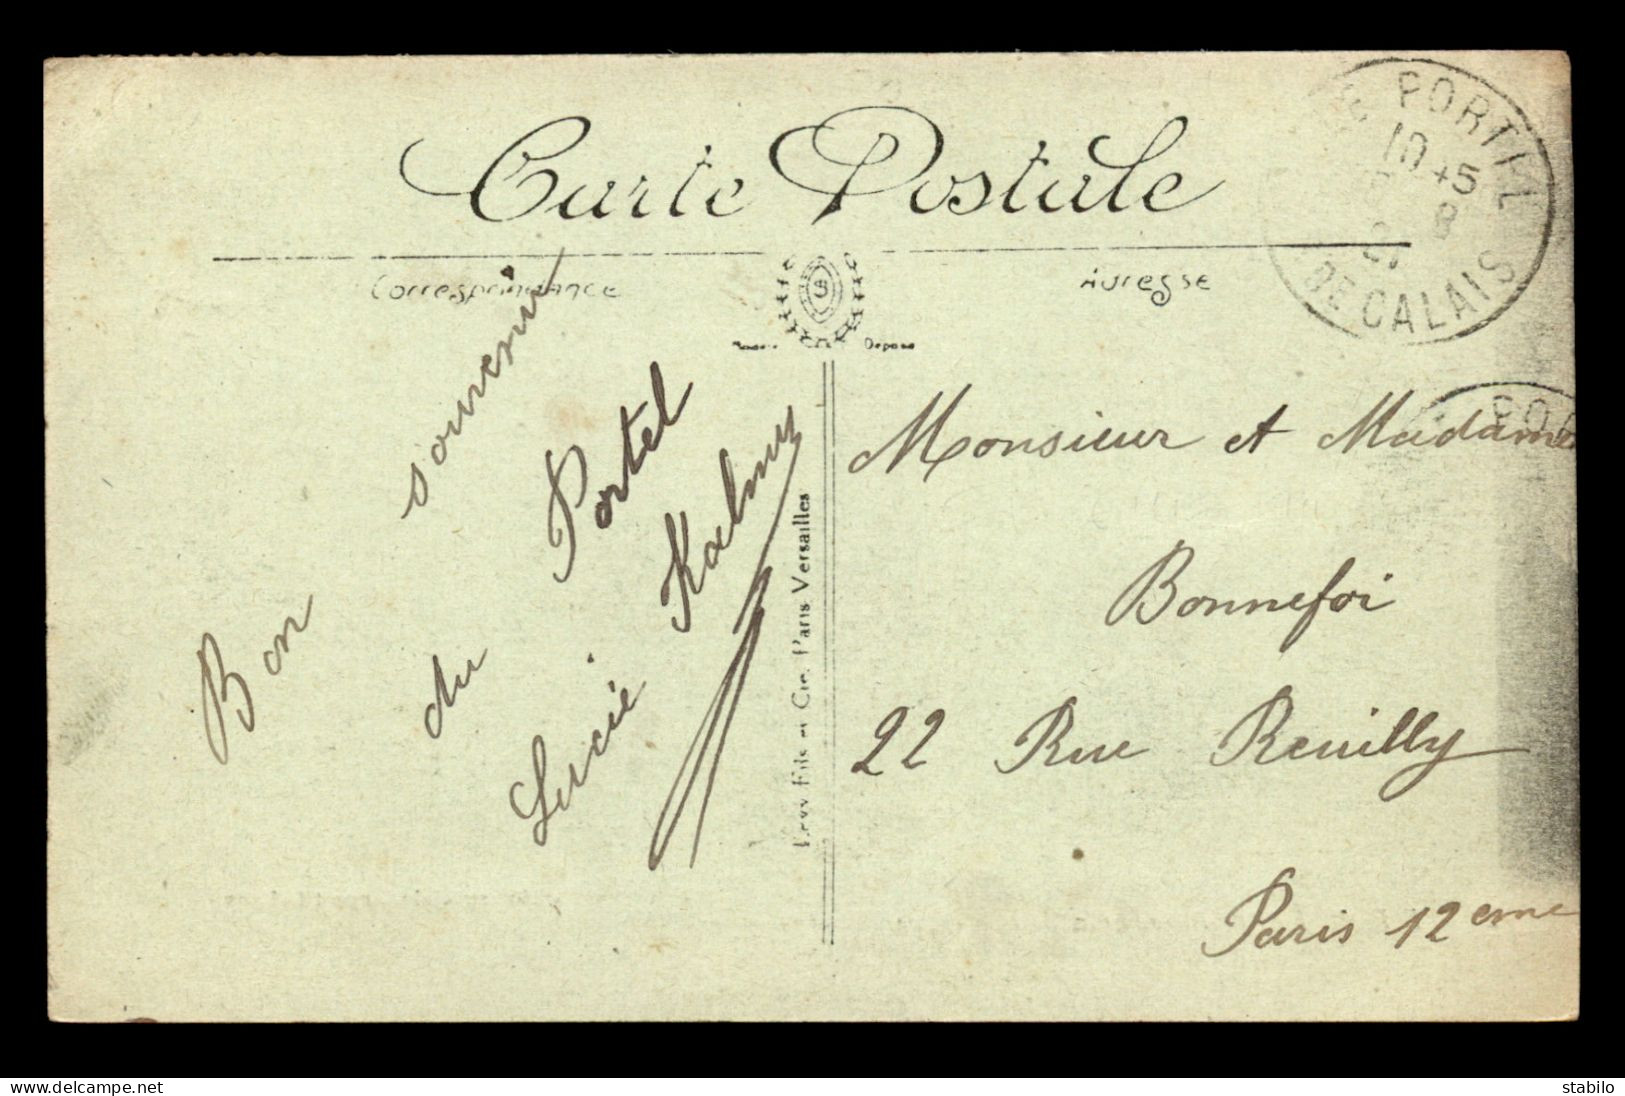 Carte Postale
Correspondance
Adresse
PORTEL
10 + 5
8
21
DE CALAIS
Bon souvenir
du Portel
Lucie Kalmus
Levy Fils et Cie. Paris Versailles
Monsieur et Madame
Bonnefoi
22 Rue Reuilly
Paris 12eme
www.delcampe.net
stabilo